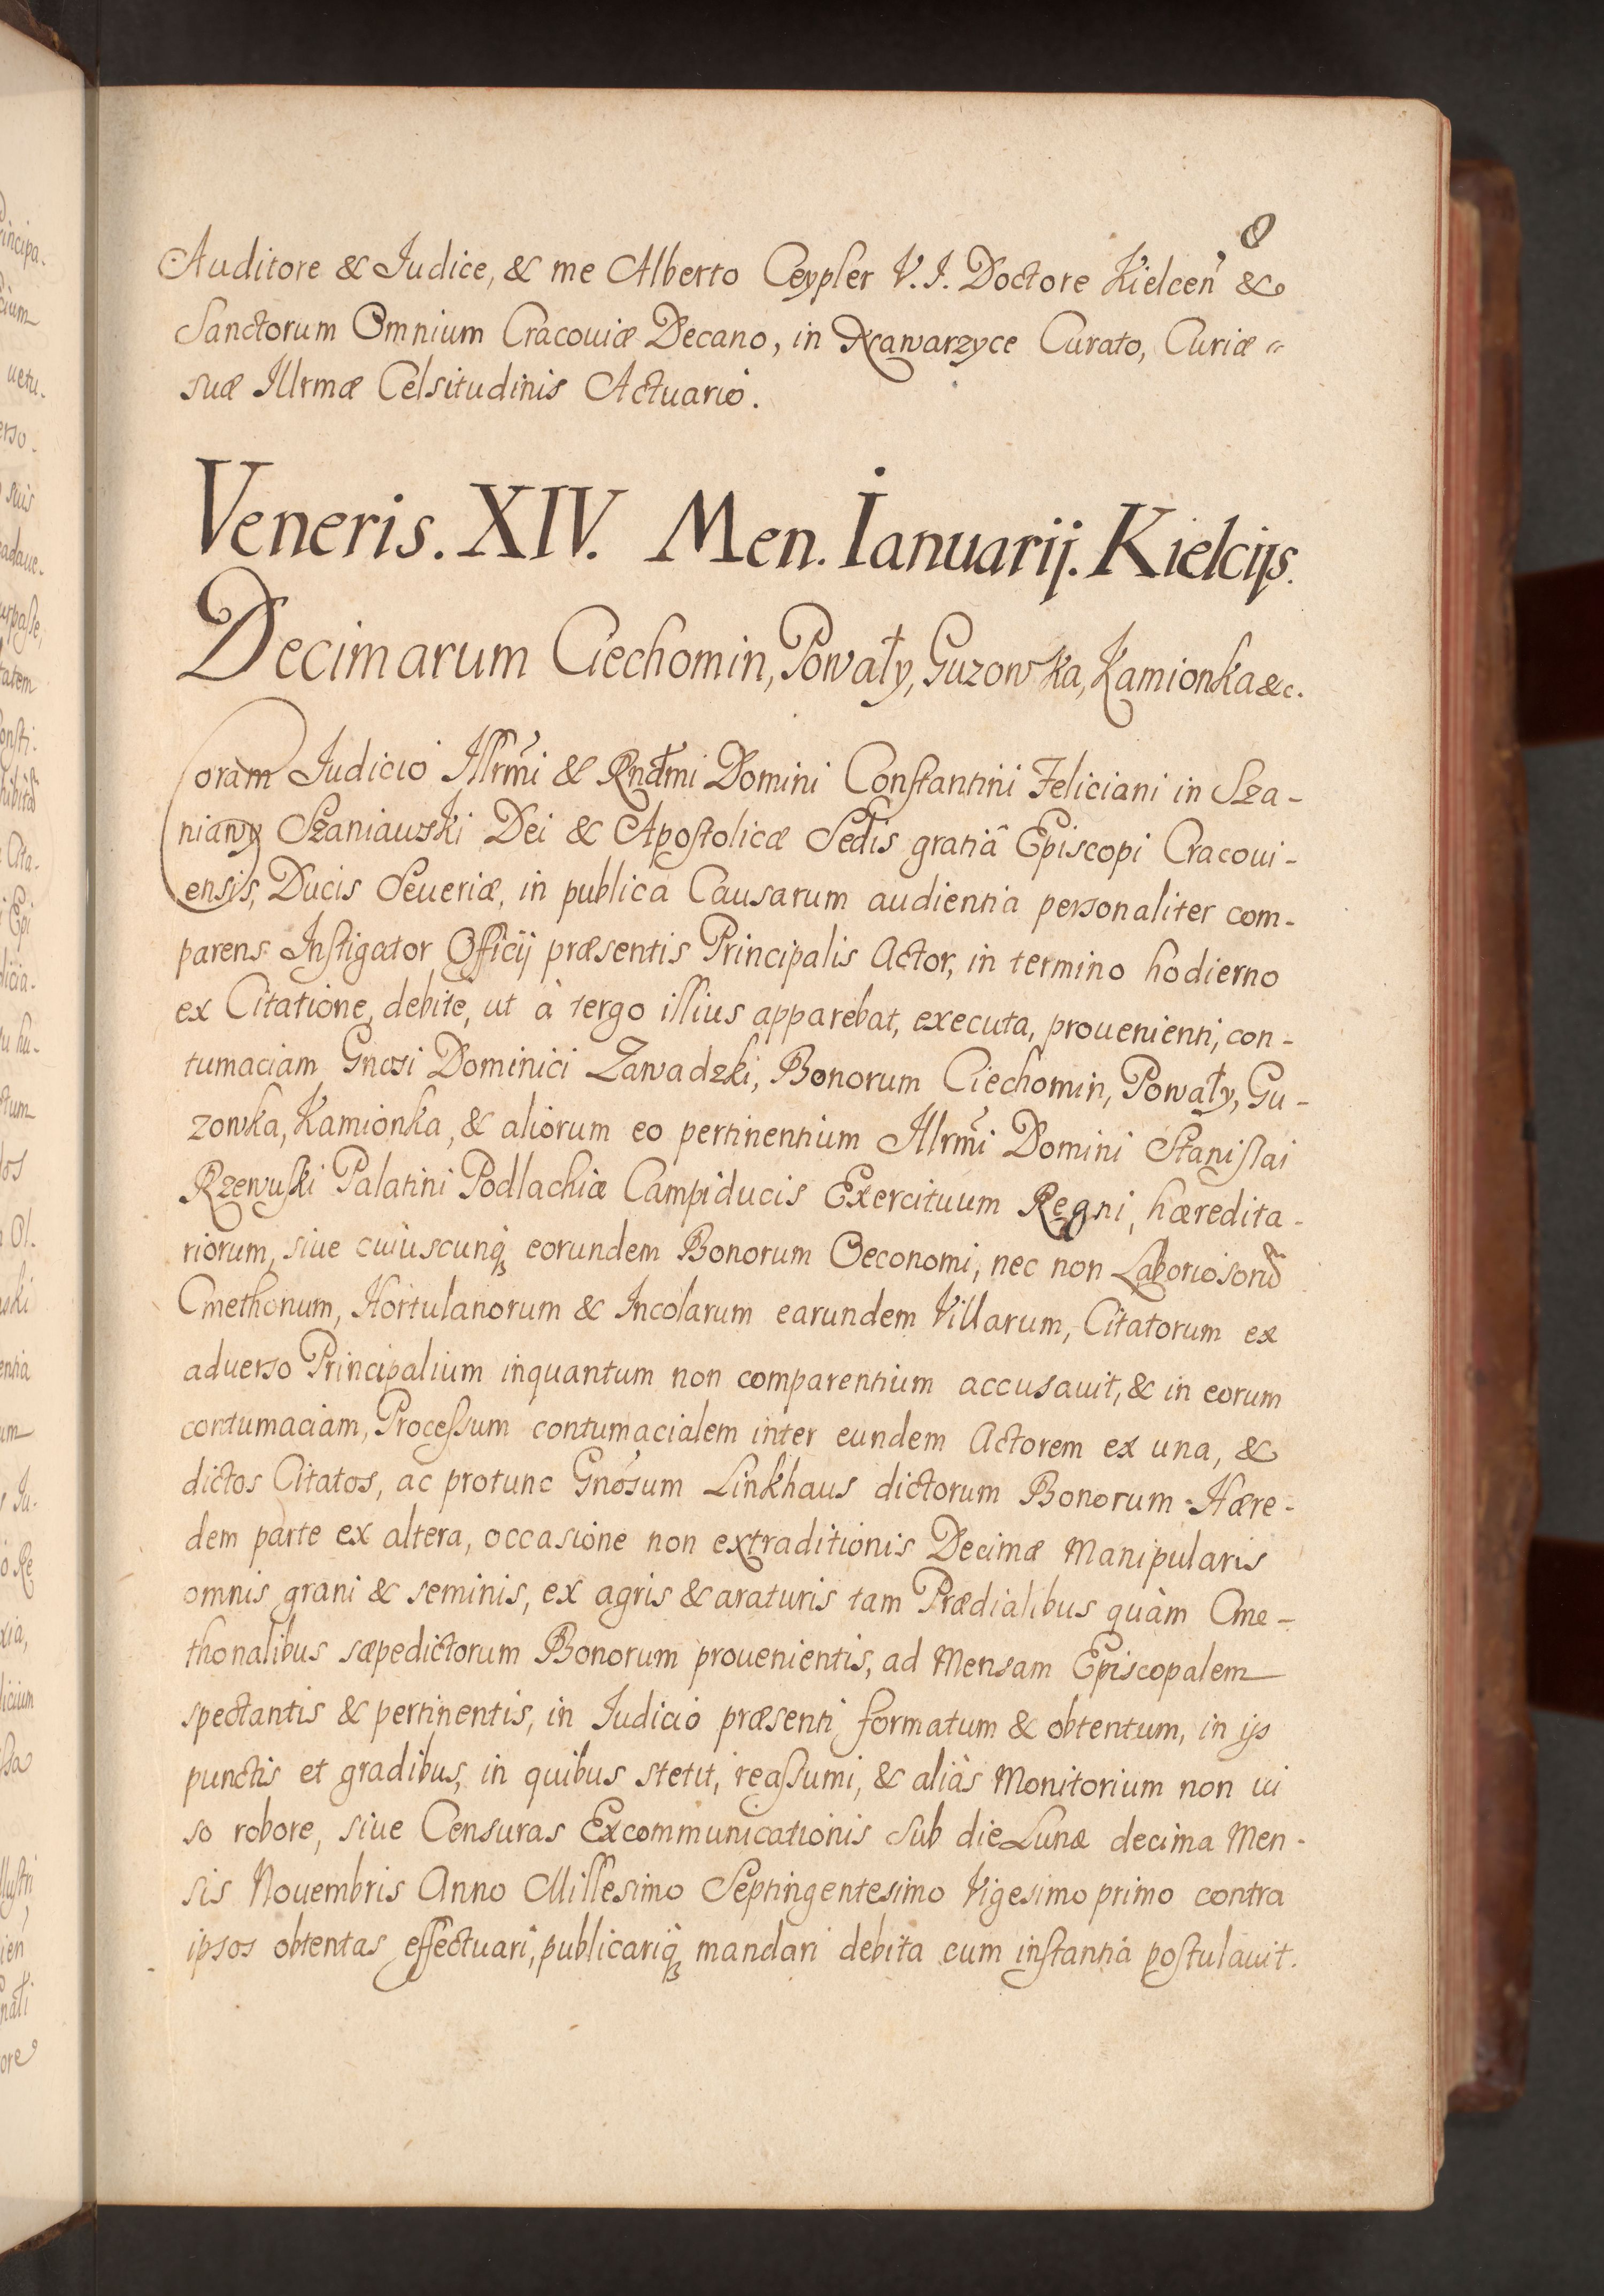 8
Auditore & Judice, & me Alberto Ceypler V. J. Doctore Kielcen &
Sanctorum Omnium Cracouiæ Decano, in Xawarzyce Curato, Curiæ
suæ Illrmæ Celsitudinis Actuario.
Veneris. XIV. Men. Ianuarij. Kielcijs.
Decimarum Ciechomin, Powały, Guzowka, Kamionka &c.
Coram Judicio Illrmi & Rndmi Domini Constantini Feliciani in Sza-
niawy Szaniawski Dei & Apostolicæ Sedis gratiâ Episcopi Cracoui-
ensis, Ducis Seueriæ, in publica Causarum audientia personaliter com-
parens Instigator Officij præsentis Principalis Actor, in termino hodierno
ex Citatione, debite, ut à tergo illius apparebat, executa, prouenienti, con-
tumaciam Gnosi Dominici Zawadzki, Bonorum Ciechomin, Powały, Gu-
zowka, Kamionka, & aliorum eo pertinentium Illrmi Domini Stanislai
Rzewuski Palatini Podlachiæ Campiducis Exercituum Regni, hæredita-
riorum, siue cuiuscunq eorundem Bonorum Oeconomi, nec non Laboriosorũ
Cmethonum, Hortulanorum & Incolarum earundem Villarum, Citatorum ex
aduerso Principalium inquantum non comparentium accusauit, & in eorum
contumaciam, Processum contumacialem inter eundem Actorem ex una, &
dictos Citatos, ac protunc Gnosum Linkhaus dictorum Bonorum Hære-
dem parte ex altera, occasione non extraditionis Decimæ Manipularis
omnis grani & seminis, ex agris & araturis tam Prædialibus quàm Cme-
thonalibus sæpedictorum Bonorum prouenientis, ad Mensam Episcopalem
spectantis & pertinentis, in Judicio præsenti formatum & obtentum, in ijs
punctis et gradibus, in quibus stetit, reassumi, & aliàs Monitorium non ui
so robore, siue Censuras Excommunicationis sub die Lunæ decima Men-
sis Nouembris Anno Millesimo Septingentesimo Vigesimo primo contra
ipsos obtentas effectuari, publicariq mandari debita cum instantia postulauit.